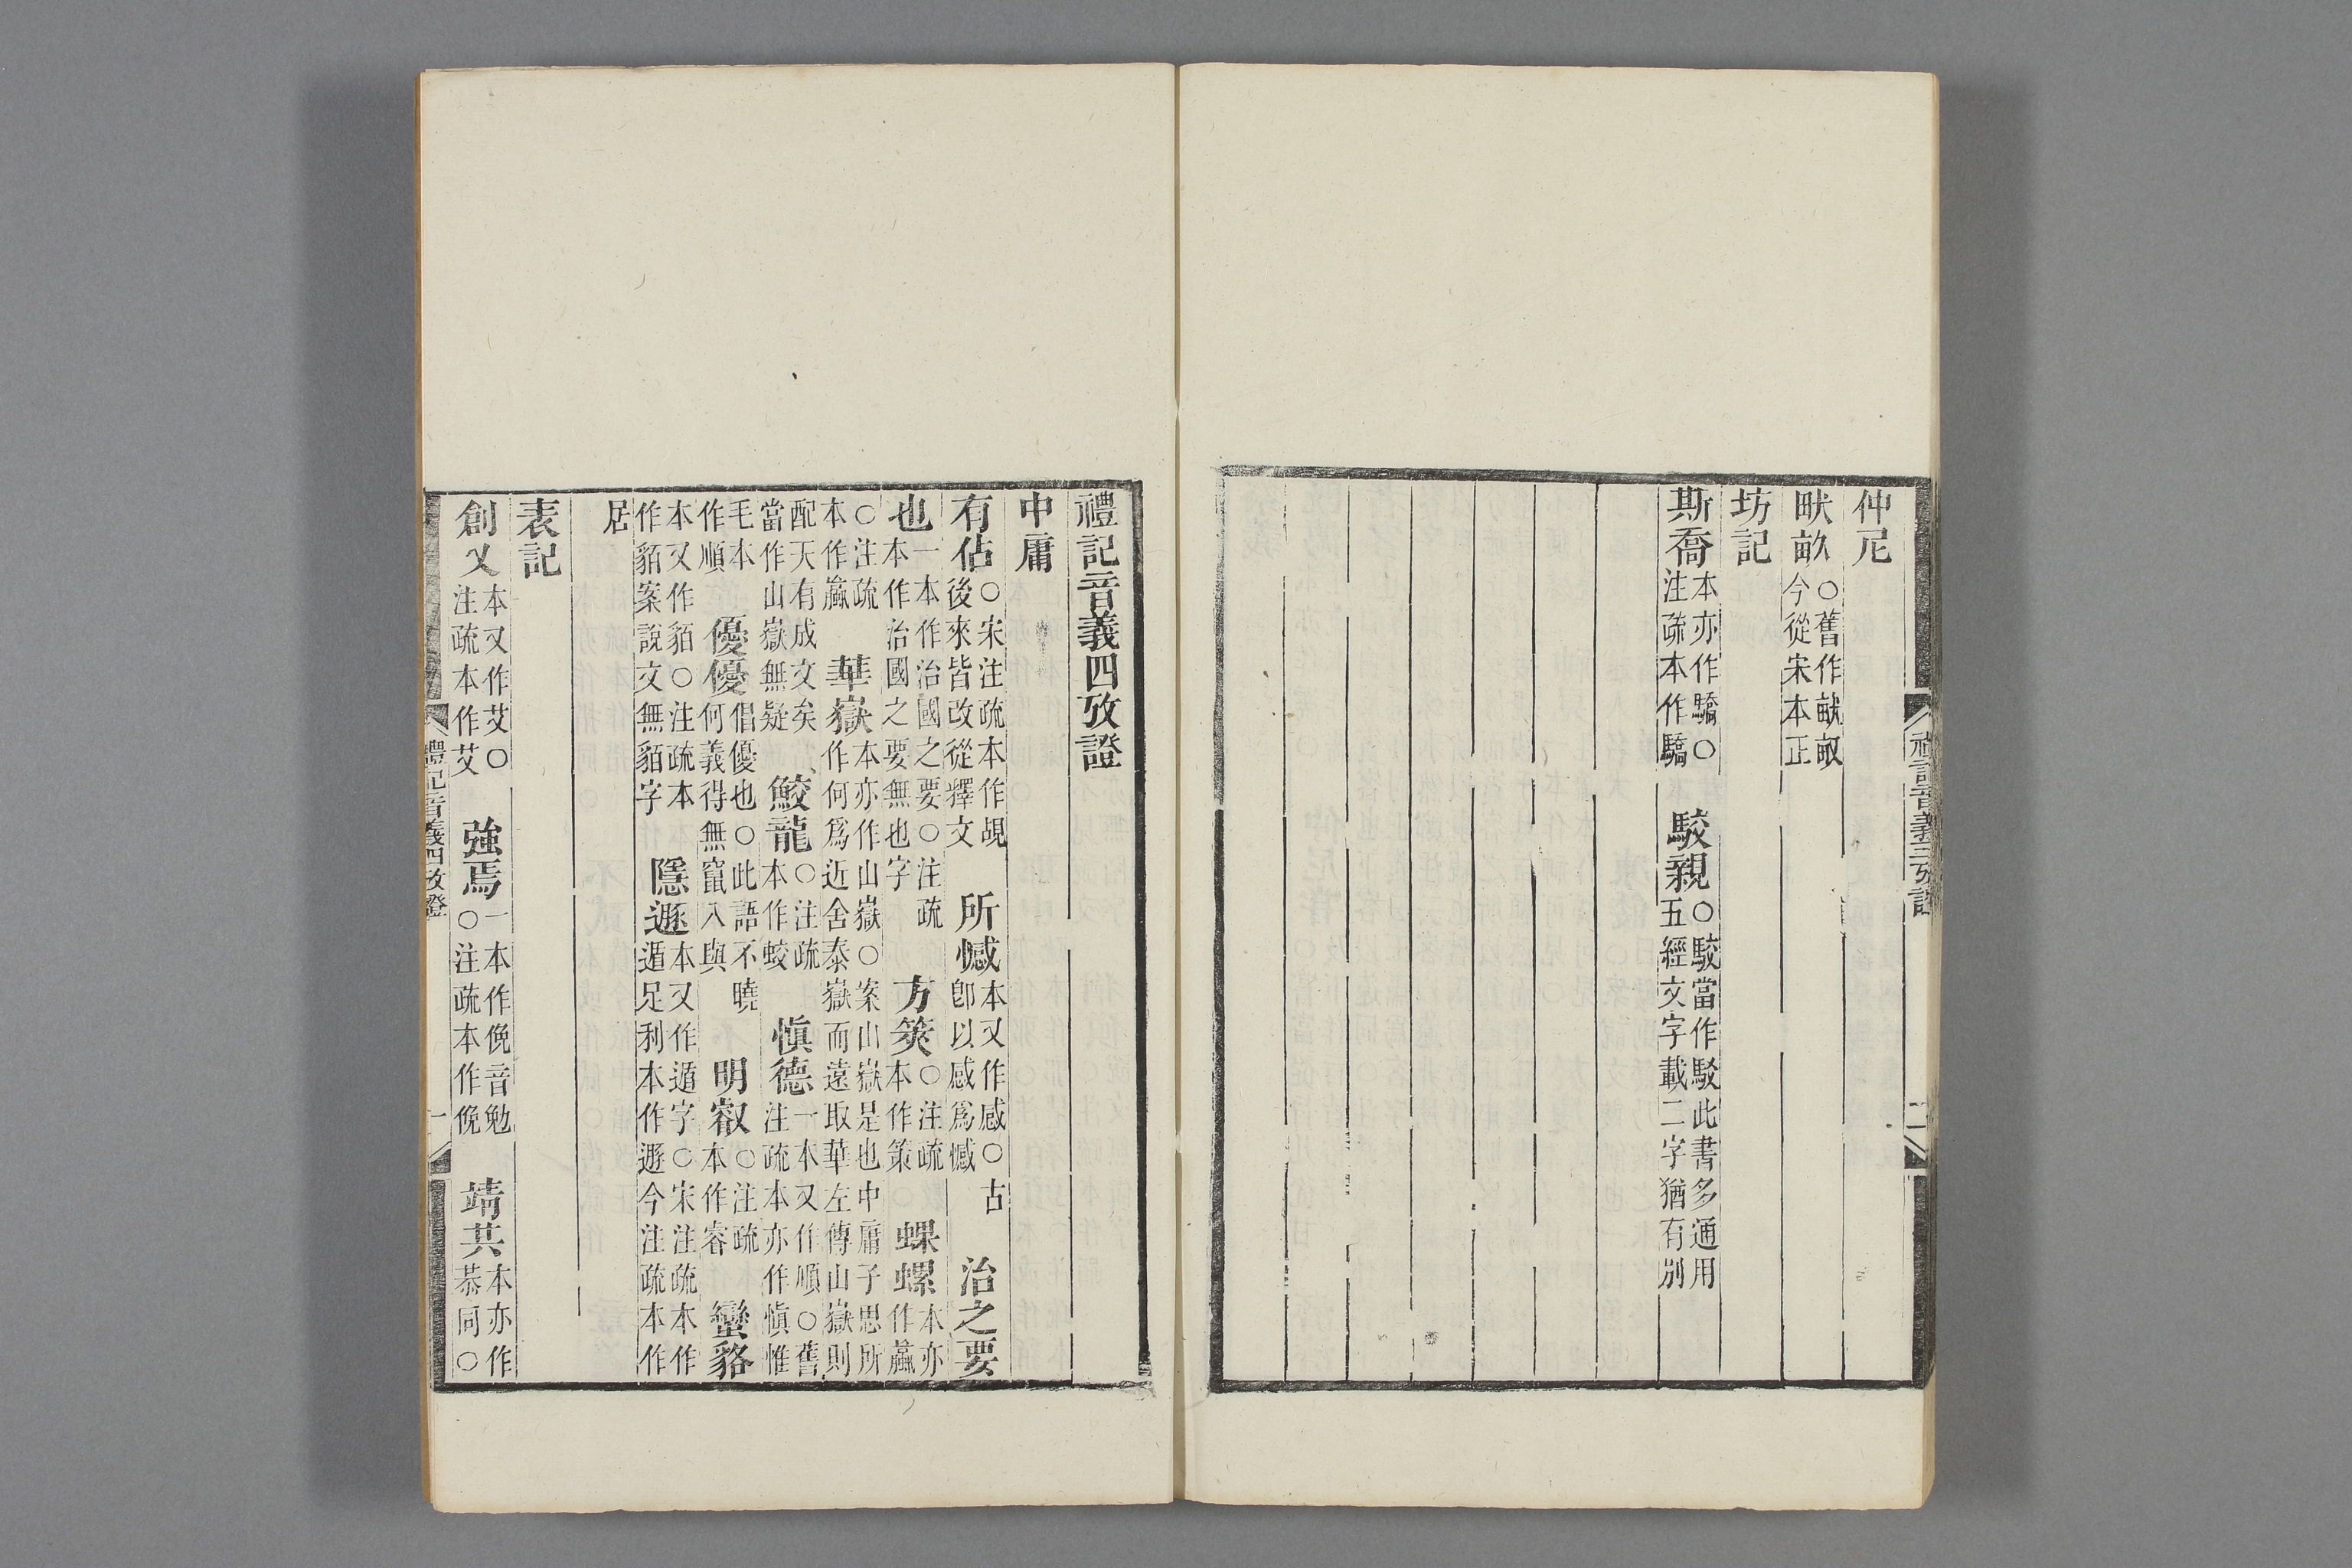 禮記音義三攷證 二
仲尼
畎畝○舊作今從宋本正
坊記
斯喬本亦作驕○注疏本作驕 駮親○駮當作駁此書多通用五經文字載二字猶有別
禮記音義四攷證
中庸
有佔○宋注疏本作覘後來皆改從釋文 所憾本又作感○古卽以感爲憾 治之要
也一本作治國之要○注疏本作治國之要無也字 方筴○注疏本作策 蜾螺本亦作蠃
○注疏本作蠃 華嶽本亦作山嶽○案山嶽是也中庸子思所作何爲近舍泰嶽而遠取華左傳山嶽則
配天有成文矣當作山嶽無疑 鮫龍○注疏本作蛟 愼德一本又作順○舊注疏本亦作愼惟
毛本作順 優優倡優也○此語不曉何義得無竄入與 明叡○注疏本作睿 蠻貉
本又作貊○注疏本作貊案說文無貊字 隱遯本又作遁字○宋注疏本作遁足利本作遯今注疏本作
㞐
表記
創乂本又作艾○注疏本作艾 強焉一本作俛音勉○注疏本作俛 靖共本亦作恭同○
禮記音義四攷證 一